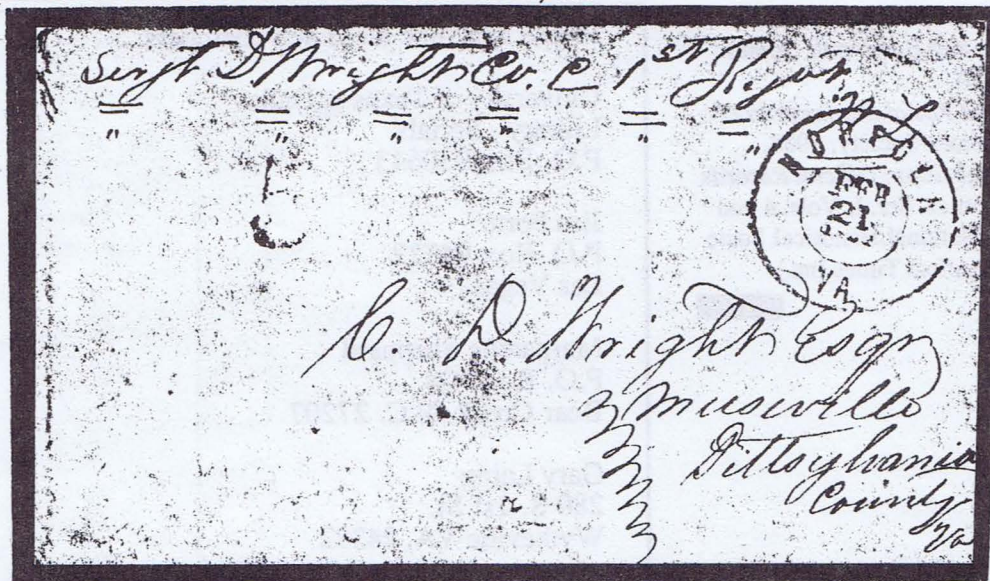 Sergt D Wright Co. C 1st Regt
5
NORFOLK
FEB
21
VA
C. D Wright Esqr
Museville
Pittsylvania
County
Va